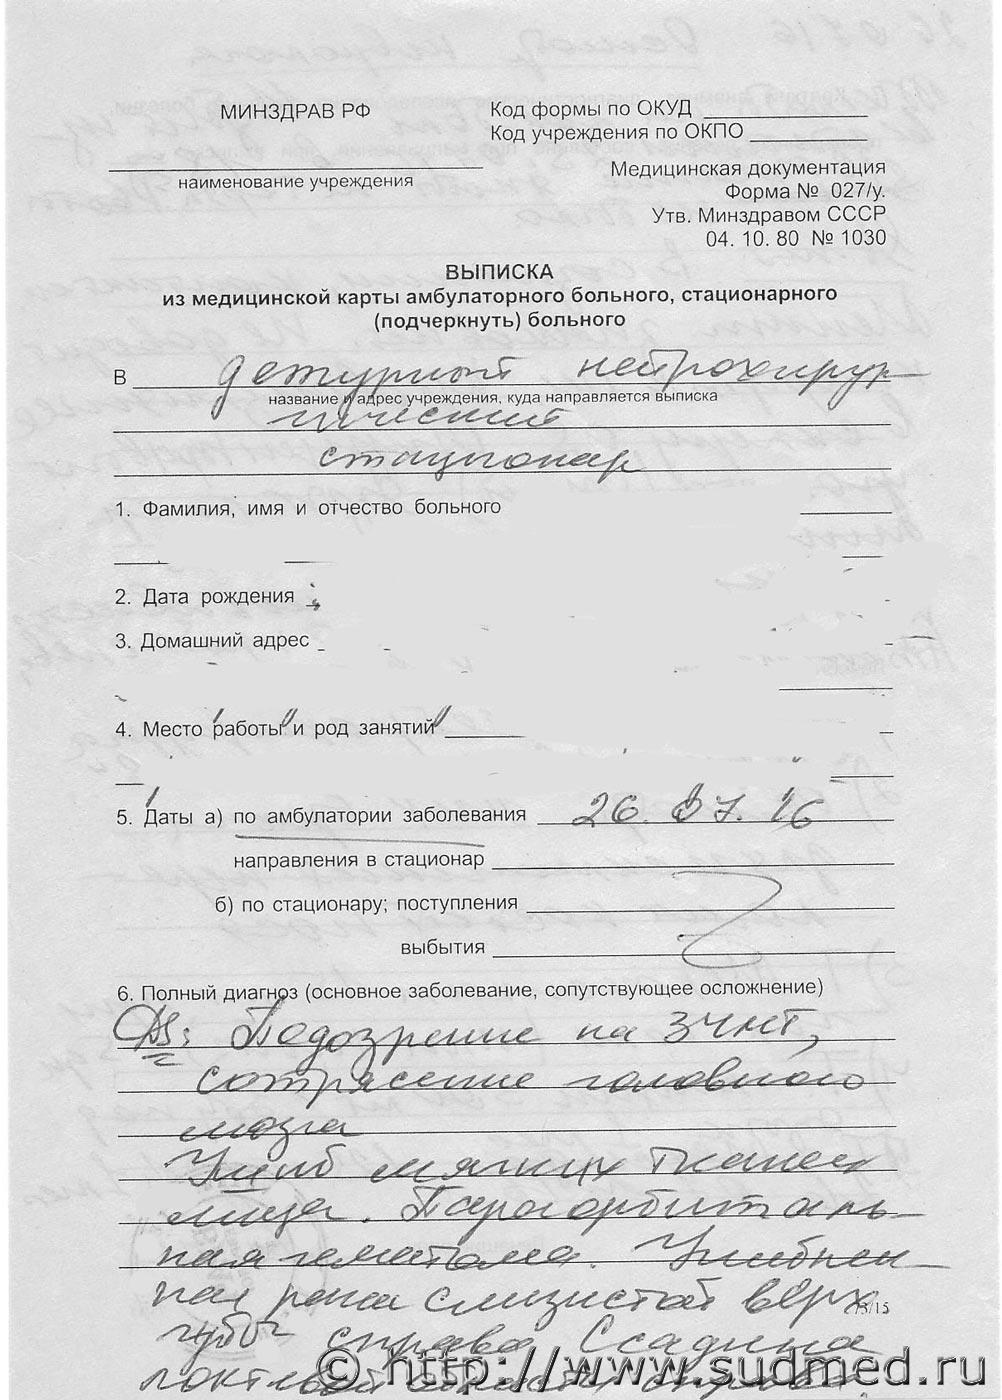 МИНЗДРАВ РФ
наименование учреждения
Код формы по ОКУД
Код учреждения по ОКПО
Медицинская документация
Форма № 027/у.
Утв. Минздравом СССР
04. 10. 80 № 1030
ВЫПИСКА
из медицинской карты амбулаторного больного, стационарного
(подчеркнуть) больного
В дежурный нейрохирур-
название и адрес учреждения, куда направляется выписка
гический
стационар
1. Фамилия, имя и отчество больного
2. Дата рождения
3. Домашний адрес
4. Место работы и род занятий
5. Даты а) по амбулатории заболевания 26.07.16
направления в стационар
б) по стационару; поступления
выбытия
6. Полный диагноз (основное заболевание, сопутствующее осложнение)
Ds: Подозрение на ЗЧМТ,
сотрясение головного
мозга
Ушиб мягких тканей
лица. Параорбиталь-
ная гематома. Ушиблен-
ная рана слизистой верх
73/15
губы справа Ссадина
локтевой области
© http://www.sudmed.ru